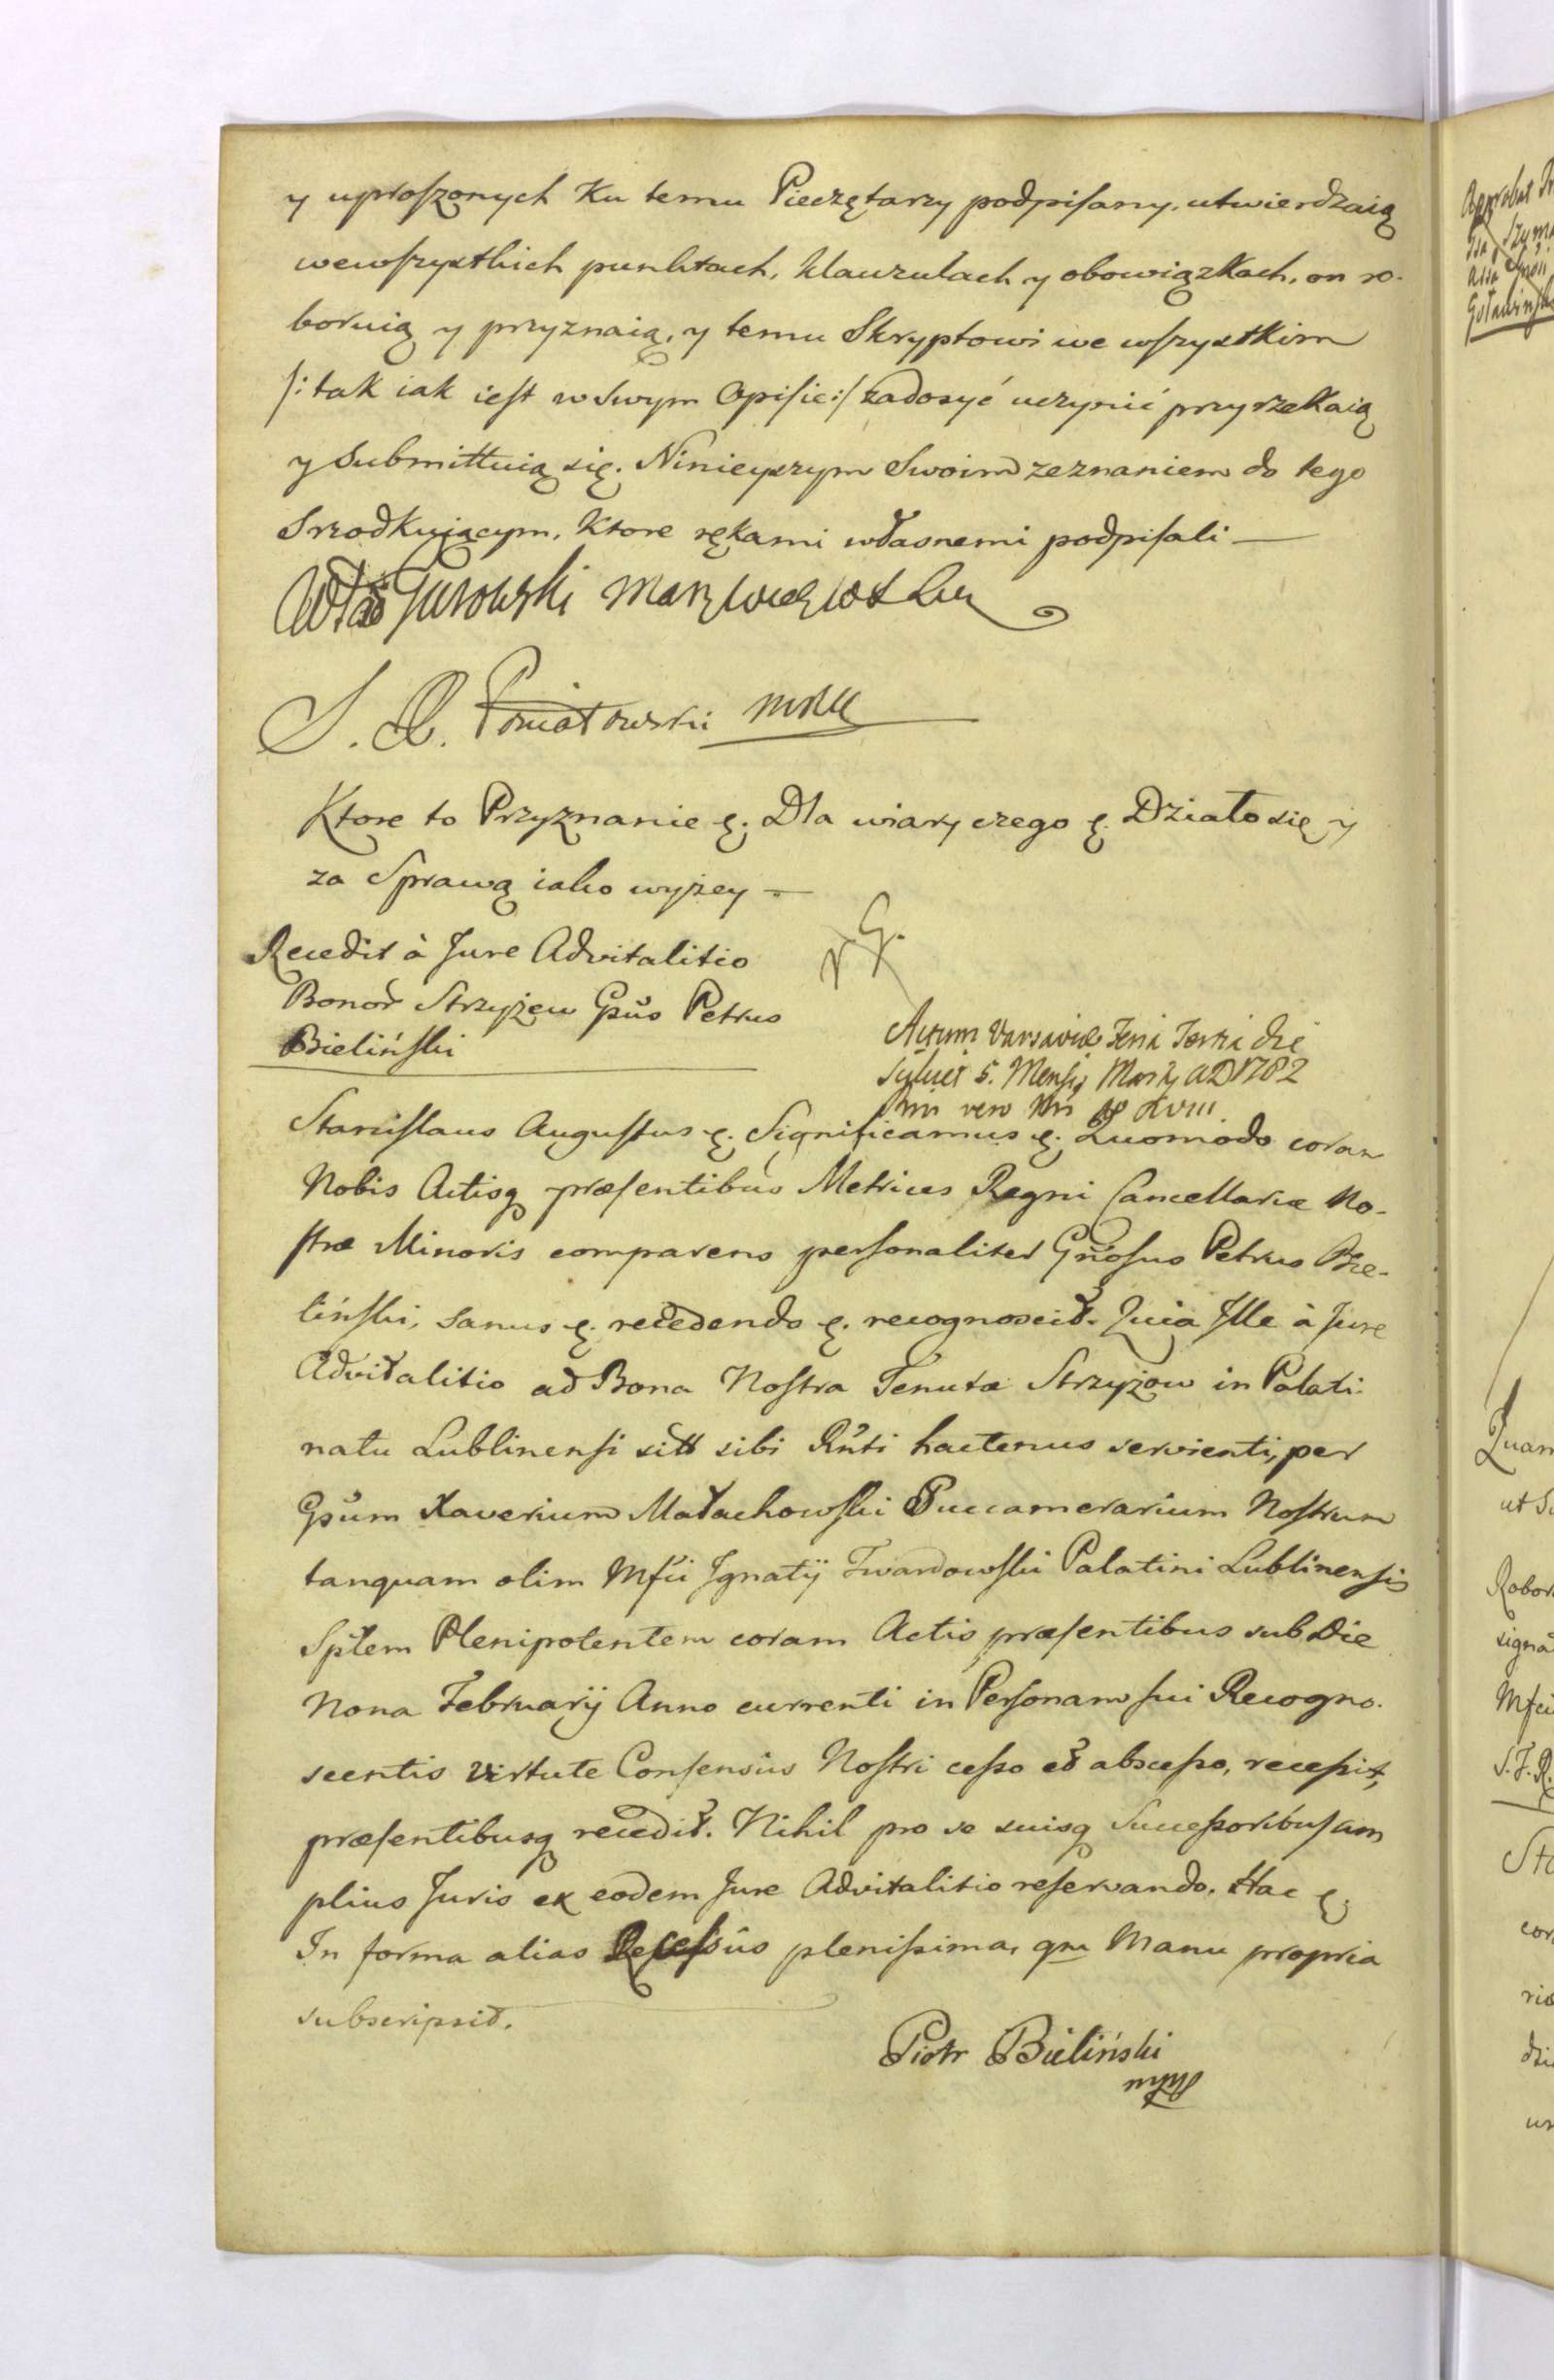 y uproszonych Ku temu Pieczętarzy podpisany, utwierdzaią
wewszystkich punktach, klauzulach y obowiązkach, on ro-
boruią y przyznaią, y temu Skryptowi we wszystkim
/: tak iak iest w swym Opisie :/ zadosyć uczynić przyrzekaią
y submittuią się. Ninieyszym Swoim zeznaniem do tego
Srzodkuiącym, Ktore rękami własnemi podpisali —
Gurowski
S. A. Poniatowski
Ktore to Przyznanie &. Dla wiary czego &. Działo się y
za Sprawą iako wyżey —
Recedit à Jure Advitalitio
Bonor Strzyżew Gsus Petrus
Bieliński
Actum Varsaviæ Feria Tertia die
scilicet 5. Mensis Marty AD 1782
Stanislaus Augustus &. Significamus &. Quomodo coram
Nobis Actisq præsentibus Metrices Regni Cancellariæ No-
stræ Minoris comparens personaliter Gnosus Petrus Bie-
liński, sanus &. recedendo &. recognoscit. Quia Ille à Jure
Advitalitio ad Bona Nostra Tenutæ Strzyżow in Palati-
natu Lublinensi sitt sibi Rnti hactenus servienti, per
Gsum Xaverium Małachowski Succamerarium Nostrum
tanquam olim Mfci Ignatij Twardowski Palatini Lublinensis
Splem Plenipotentem coram Actis præsentibus sub Die
Nona Februarij Anno currenti in Personam sui Recogno-
scentis virtute Consensus Nostri cesso et abscesso, recessit,
præsentibusq recedit. Nihil pro se suisq Successoribus am
plius Juris ex eodem Jure Advitalitio reservando. Hac &.
In forma alias Recessûs plenissima, qm Manu propria
subscripsit.
Piotr Bieliński
mpp